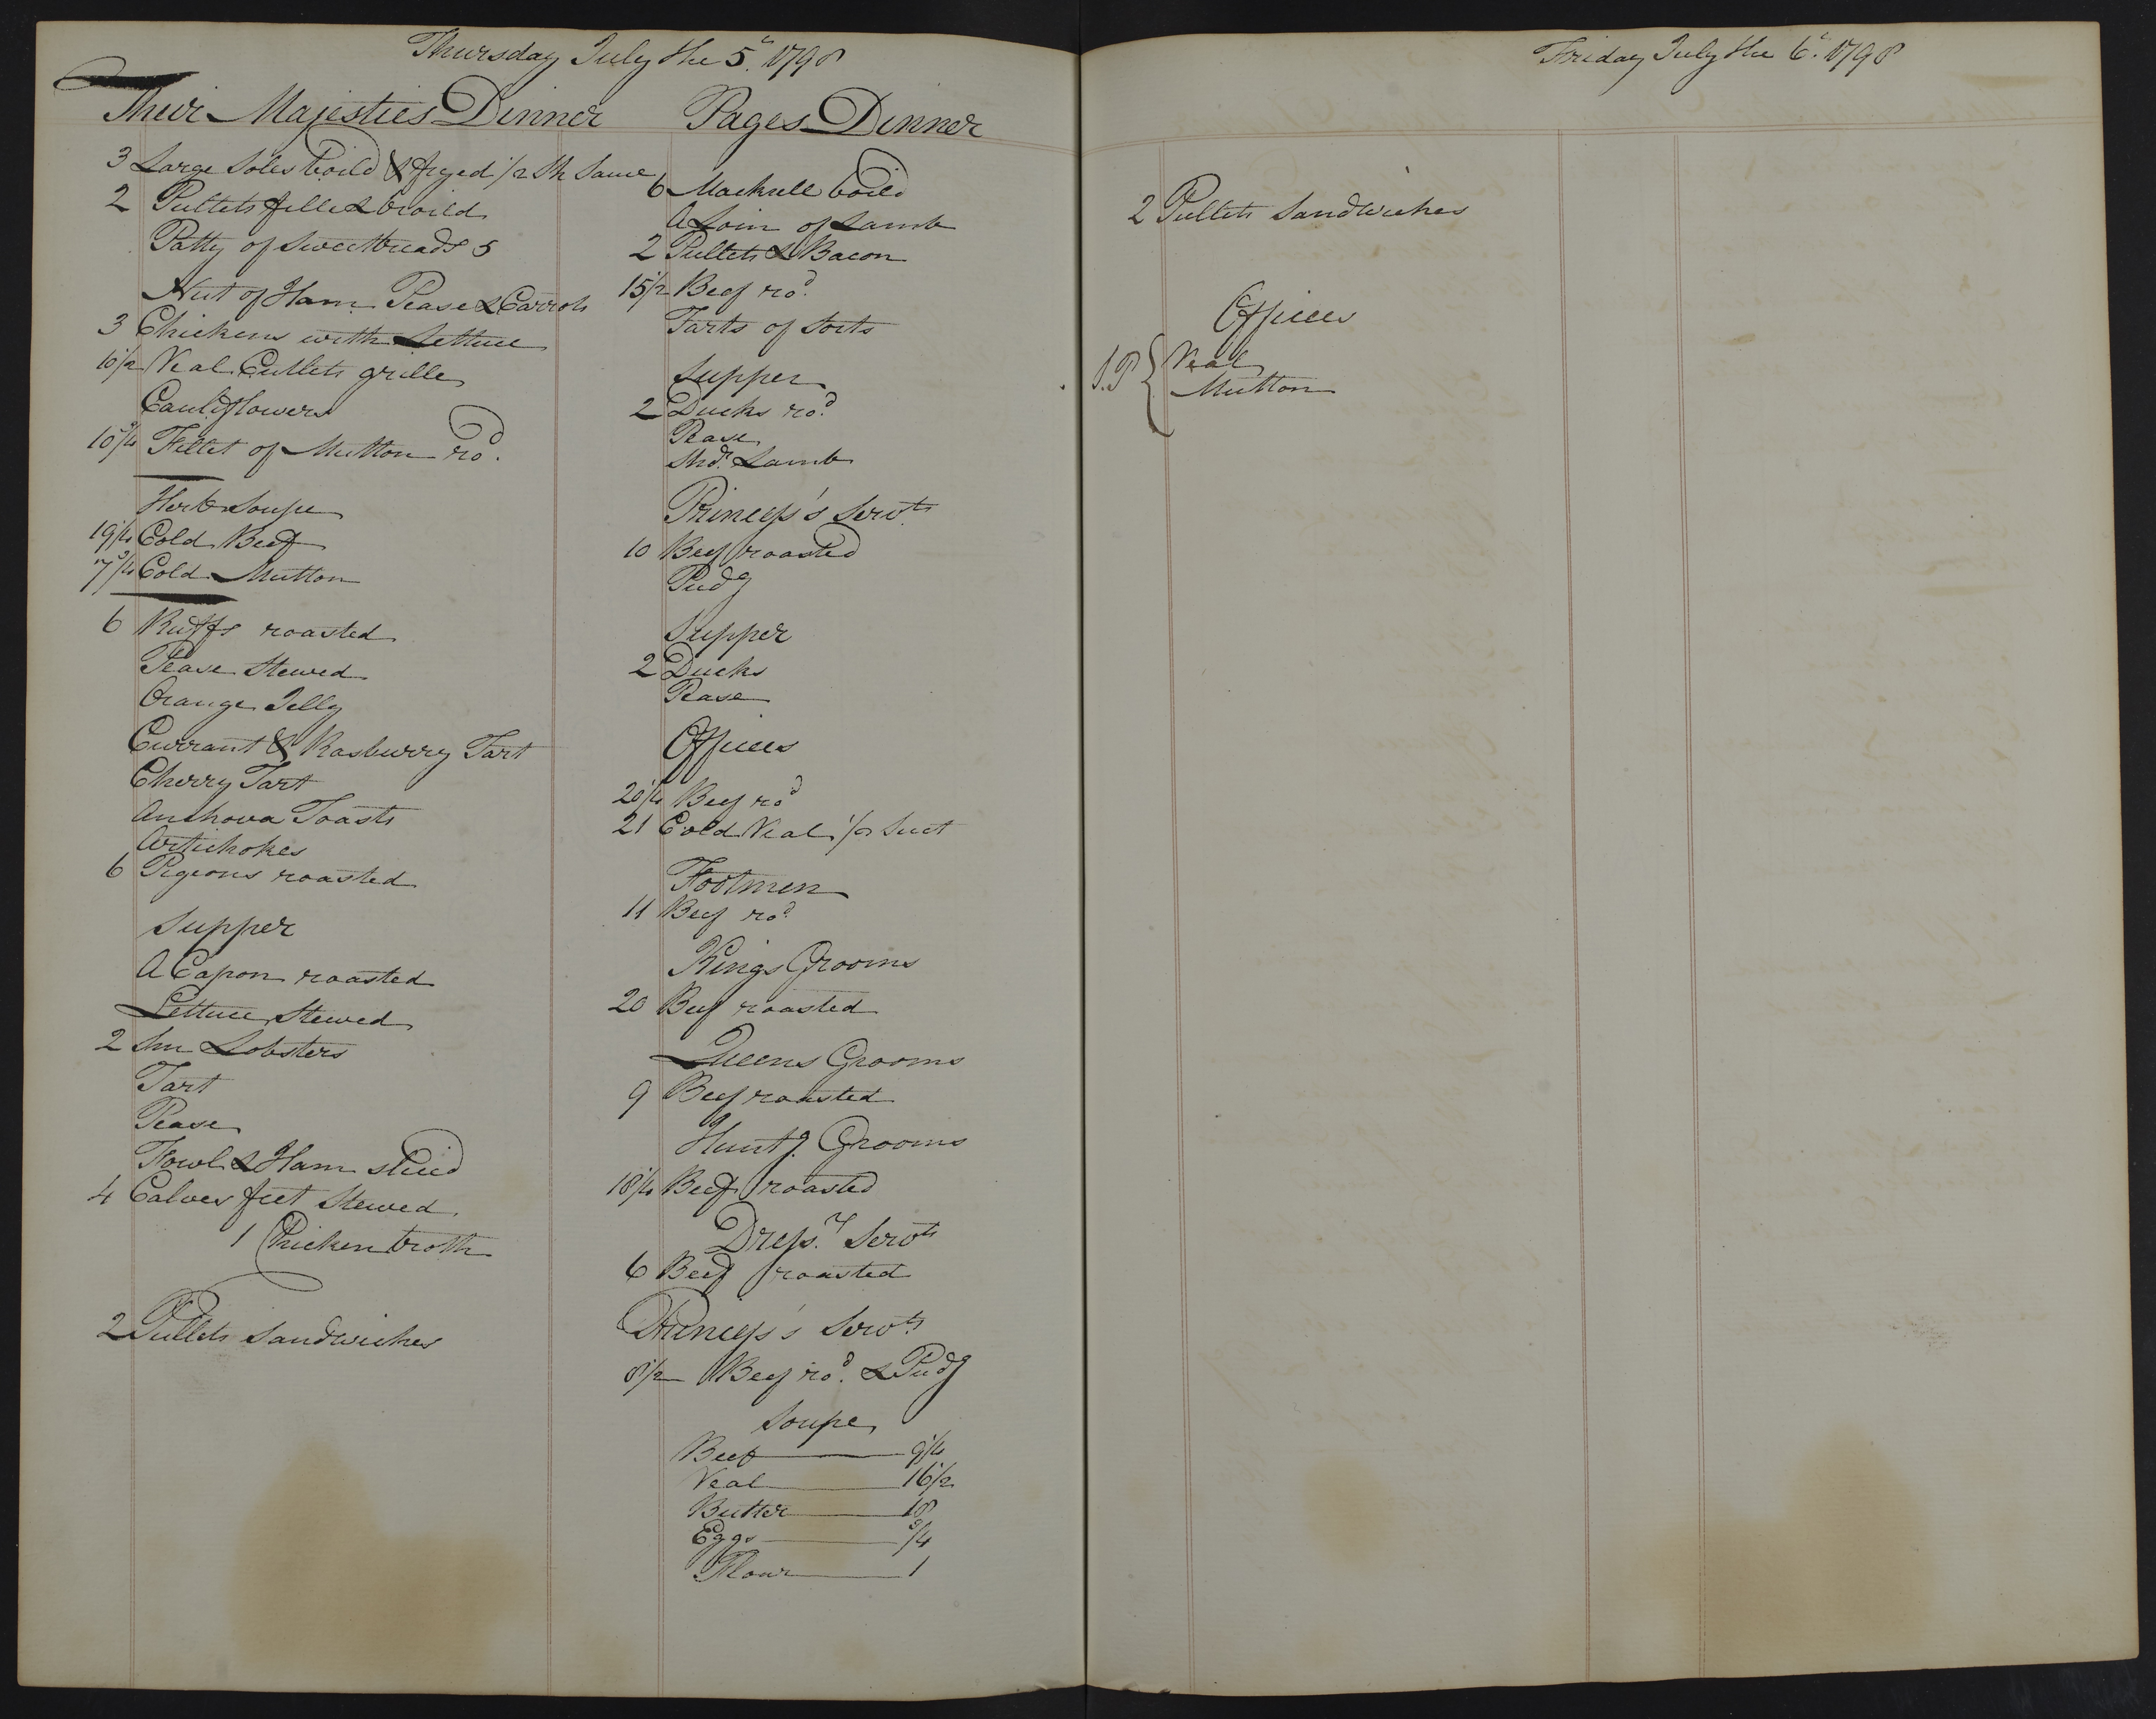 Thursday July the 5th. 1798
Their Majesties Dinner
3 Large Soles boild & fryed 1/2 Sh Sauce
2 Pullets fille & broild
Patty of Sweetbreads 5
Nut of Ham Pease & Carrots
3 Chickens with Lettuce
10 1/2 Veal Cutlets grille
Cauliflowers
10 3/4 Fillet of Mutton rod.
Herb Soupe
19 1/4 Cold Beef
7 3/4 Cold Mutton
6 Ruffs roasted
Pease Stewed
Orange Jelly
Currant & Rasburry Tart
Cherry Tart
Anchova Toasts
Artichokes
6 Pigeons roasted
Supper
A Capon roasted
Lettuce Stewed
2 Sm Lobsters
Tart
Pease
Fowl & Ham sliced
4 Calves feet Stewed
1 Chicken broth
2 Pullets Sandwiches
Pages Dinner
6 Mackrell boild
A Loin of Lamb
2 Pullets & Bacon
15 1/2 Beef rod.
Tarts of Sorts
Supper
2 Ducks rod.
Pease
Shdr. Lamb
Princess's Servts.
10 Beef roasted
Pudg
Supper
2 Ducks
Pease
Offices
20 1/4 Beef rod
21 Cold Veal 1/2 Suet
Footmen
11 Beef rod.
Kings Grooms
20 Beef roasted
Queens Grooms
9 Beef roasted
Huntg. Grooms
18 1/4 Beef roasted
Dress.rs Servts
6 Beef roasted
Princess's Servts.
8 1/2 Beef rod. & Pudg
Soupe
Beef 9 1/4
Veal 16 1/2
Butter 18
Eggs 3/4
Flour 1
Friday July the 6th. 1798
2 Pullets Sandwiches
Offices
S.P { Veal
Mutton